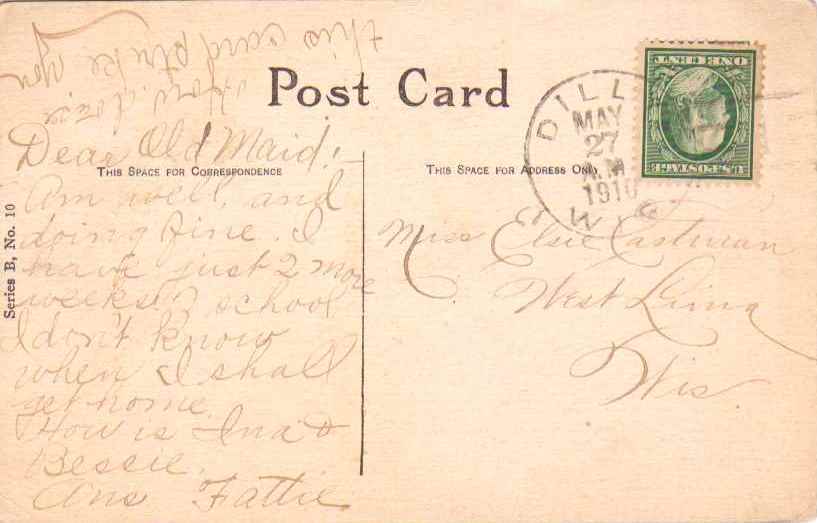 How does
this card strike you
Post Card
Dear Old Maid:-
THIS SPACE FOR CORRESPONDENCE
Am well, and
doing fine. I
have just 2 more
weeks school
I don't know
when I shall
get home.
How is Ina &
Bessie.
Ans Fattie
Series B, No. 10
THIS SPACE FOR ADDRESS ONLY
DILL
MAY
27
A.M
1910
W
U.S. POSTAGE
ONE CENT
Miss Elsie Eastman
West Lima
Wis.